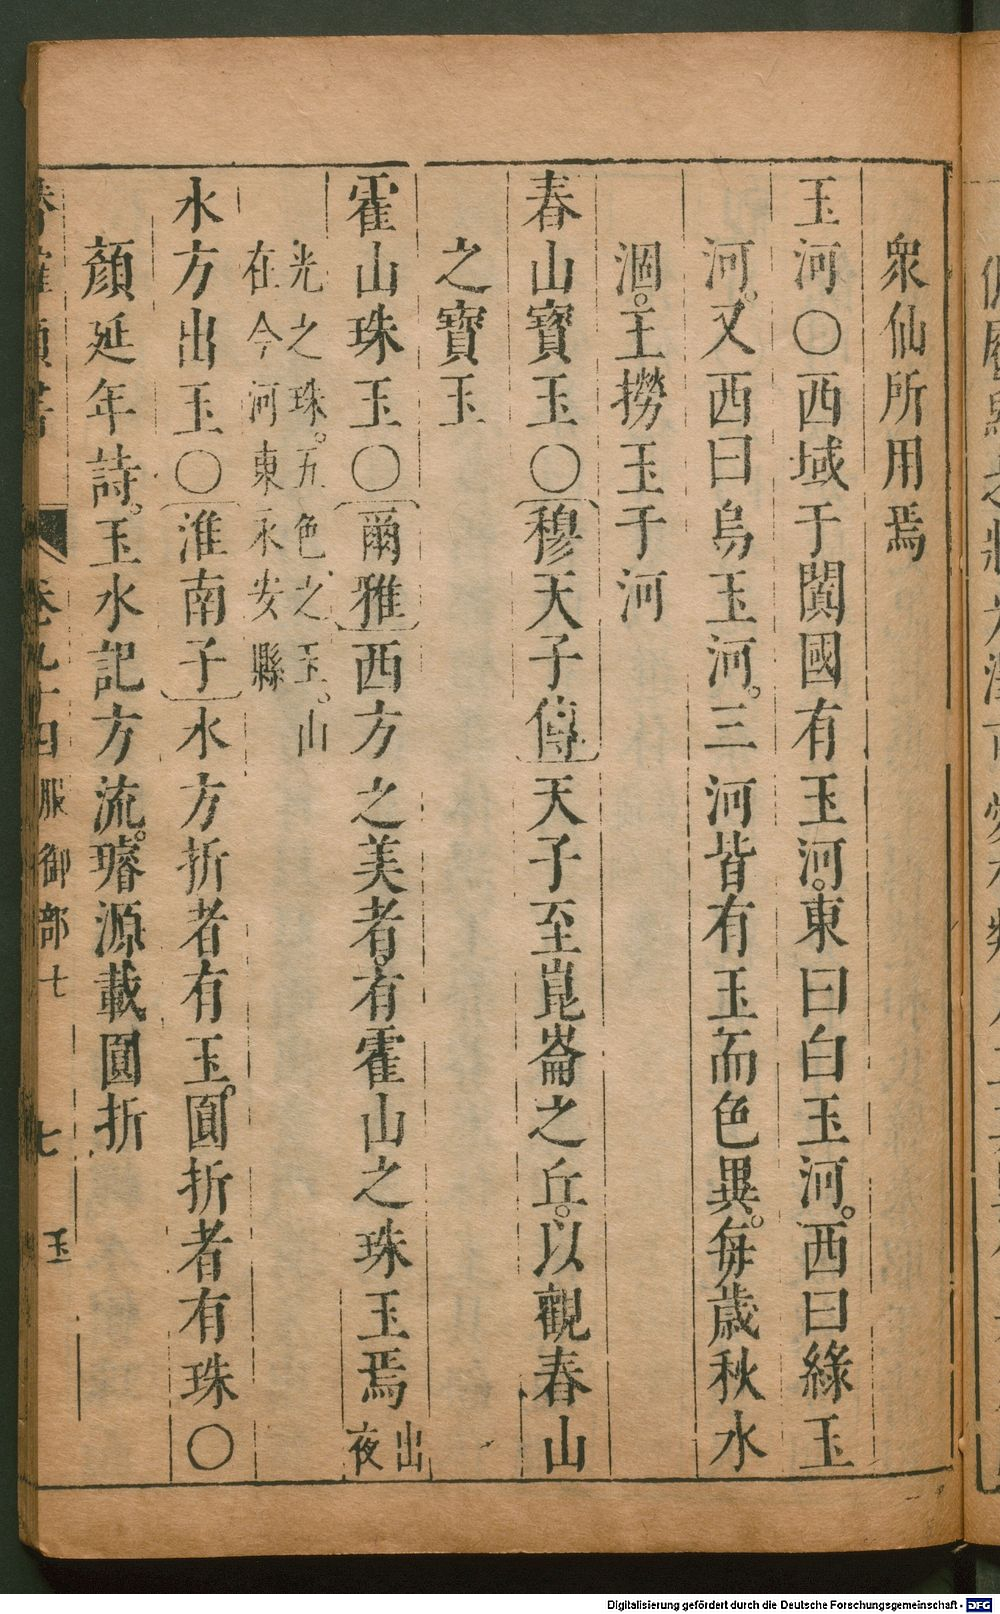 衆仙所用焉
玉河○西域于闐國有玉河。東曰白玉河。西曰綠玉
河。又西曰烏玉河。三河皆有玉而色異。每歲秋水
涸。王撈玉于河
春山寶玉○穆天子傳天子至崑崙之丘。以觀春山
之寶玉
霍山珠玉○爾雅西方之美者。有霍山之珠玉焉出
夜
光之珠。五色之玉。山
在今河東永安縣
水方出玉○淮南子水方折者有玉。圓折者有珠○
顏延年詩。玉水記方流。璿源載圓折
卷九十四服御部七 七 玉
Digitalisierung gefördert durch die Deutsche Forschungsgemeinschaft - DFG